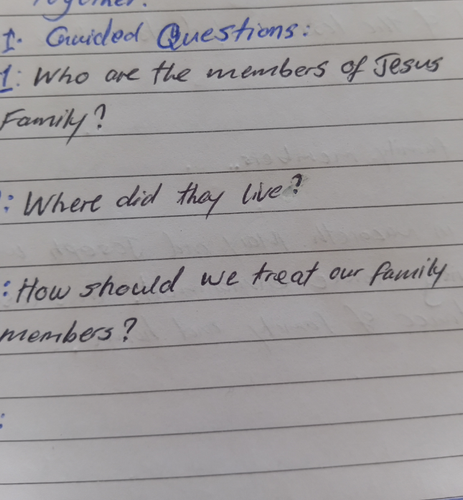 Together.
I. Guided Questions:
1: Who are the members of Jesus
Family?
: Where did they live?
: How should we treat our family
members?
: